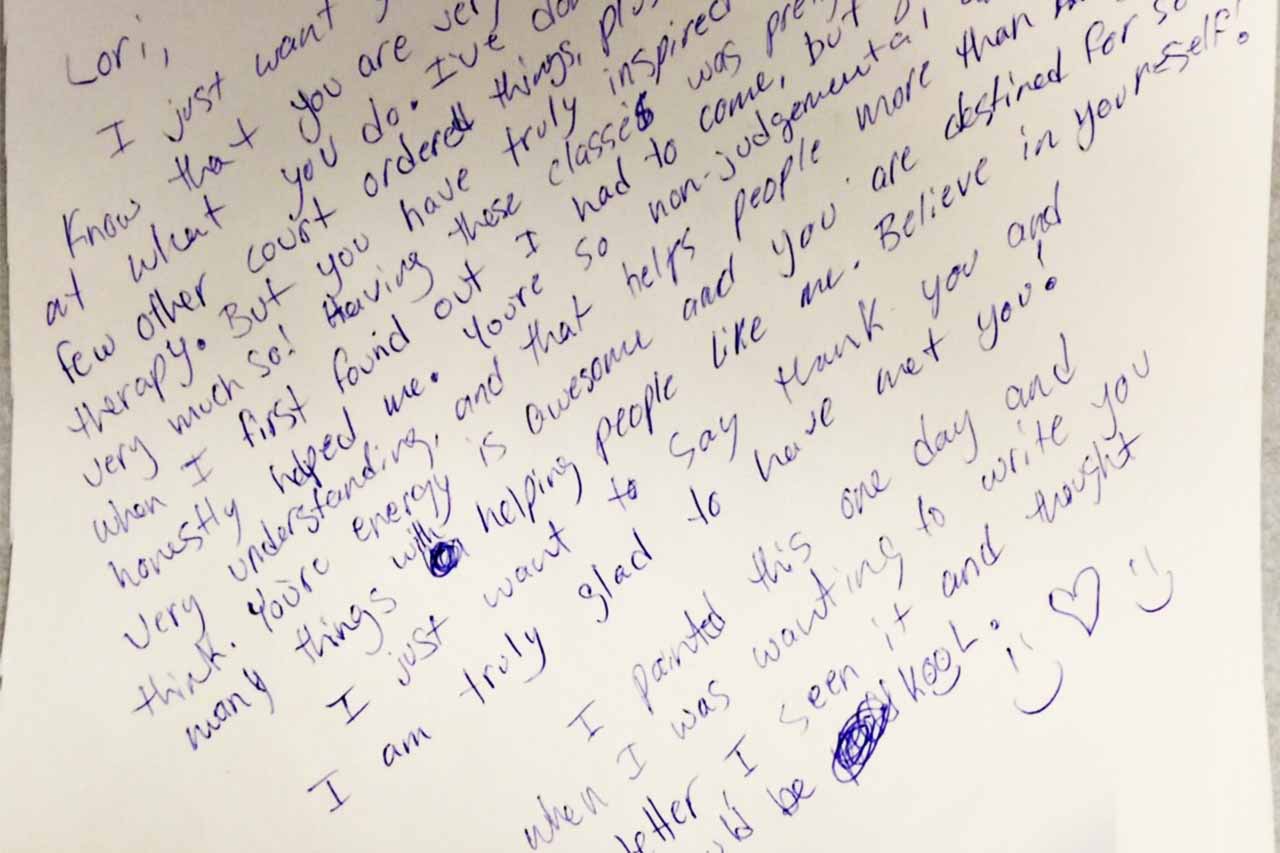 Lori,
I just want
Know that you are very
at what you do. I've
few other court ordered things, plus
therapy. But you have truly inspired
very much so! Having these classes was
when I first found out I had to come, but
honestly helped me. You're so non-judgemental
very understanding, and that helps people more than
think. You're energy is awesome and you are destined for so
many things with helping people like me. Believe in yourself!
I just want to say thank you and
I am truly glad to have met you!
I painted this one day and
when I was wanting to write you
letter I seen it and thought
be kooL.